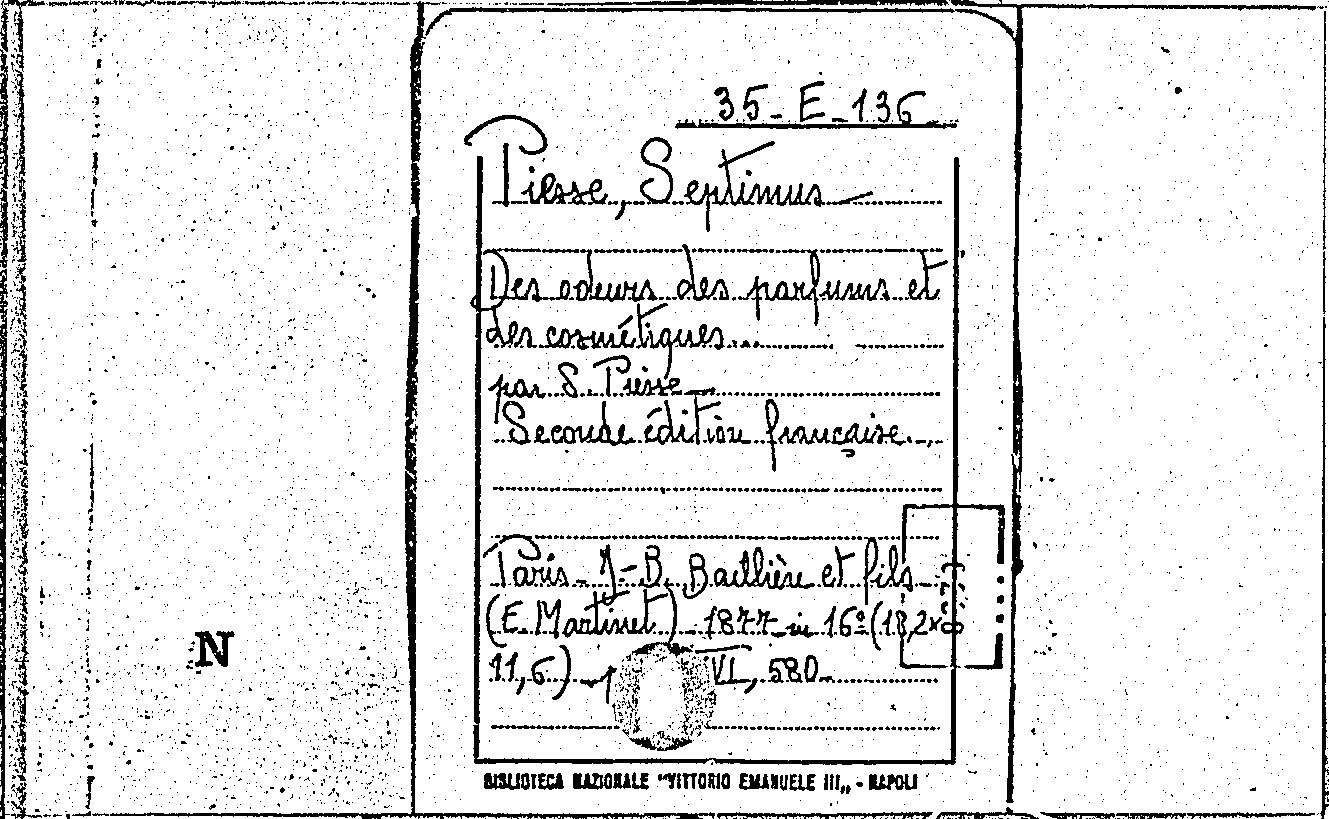 35-E-136
Piesse, Septimus
Des odeurs des parfums et
des cosmétiques...
par S. Piesse
Seconde édition française.
Paris - J-B. Baillière et fils
(E. Martinet) - 1877 - in 16º (18,2x
11,6) VI, 580
BIBLIOTECA NAZIONALE "VITTORIO EMANUELE III„ - NAPOLI
N